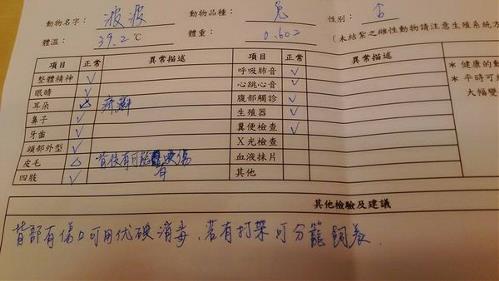 動物名字: 波波 動物品種: 兔 性別: 否
體溫: 39.2 ℃ 體重: 0.602 (未結紮之雌性動物請注意生殖系統
項目 正常 異常描述 項目 正常 異常描述
整體精神 ✓ 呼吸肺音 ✓
眼睛 ✓ 心跳心音 ✓
耳朵 △ 疥癬 腹部觸診 ✓
鼻子 ✓ 生殖器 ✓
牙齒 ✓ 糞便檢查 ✓
頭部外型 ✓ X光檢查
皮毛 △ 血液抹片
四肢 ✓ 其他
* 健康的動
* 平時可
大幅變
其他檢驗及建議
背部有傷口可用优碘消毒、若有打架可分籠飼養.